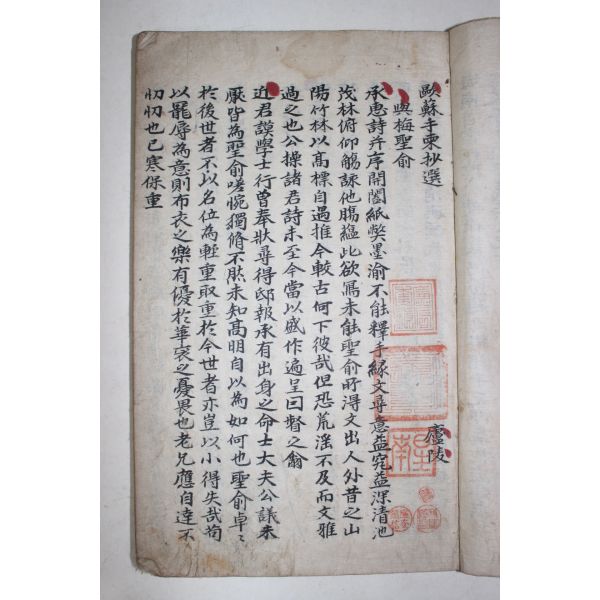 歐蘇手柬抄選
與梅聖俞 廬陵
承惠詩并序開闔紙弊墨渝不能釋手緣文尋意益究益深清池
茂林俯仰觴詠他腸蘊此欲寫未能聖俞所得文出人外昔之山
陽竹林以高標自遇推今較古何下彼哉但恐荒淫不及而文雅
過之也公操諸君詩未至今當以盛作遍呈因督之翕
近君謨學士行曽奉狀尋得邸報承有出身之命士大夫公議未
厭皆為聖俞嗟惋獨脩不肰未知高明自以為如何也聖俞卓〻
於後世者不以名位為輊重取重於今世者亦豈以小得失哉苟
以寵辱為意則布衣之樂有優於華衮之憂畏也老兄應自達不
忉忉也已寒保重